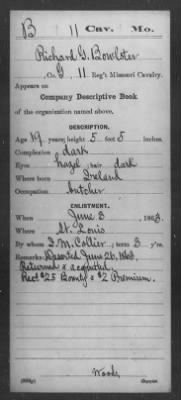 B 11 Cav. Mo.
Richard G. Bowlster
, Co. G, 11 Reg't Missouri Cavalry.
Appears on
Company Descriptive Book
of the organization named above.
DESCRIPTION.
Age 19 years; height 5 feet 8 inches.
Complexion dark
Eyes hazel; hair dark
Where born Ireland
Occupation butcher
ENLISTMENT.
When June 3, 1863.
Where St. Louis
By whom J. M. Collier; term 3 y'rs.
Remarks: Deserted June 26, 1863.
Returned &
Rec'd $25 Bounty & $2 Premium.
Woods
Copyist.